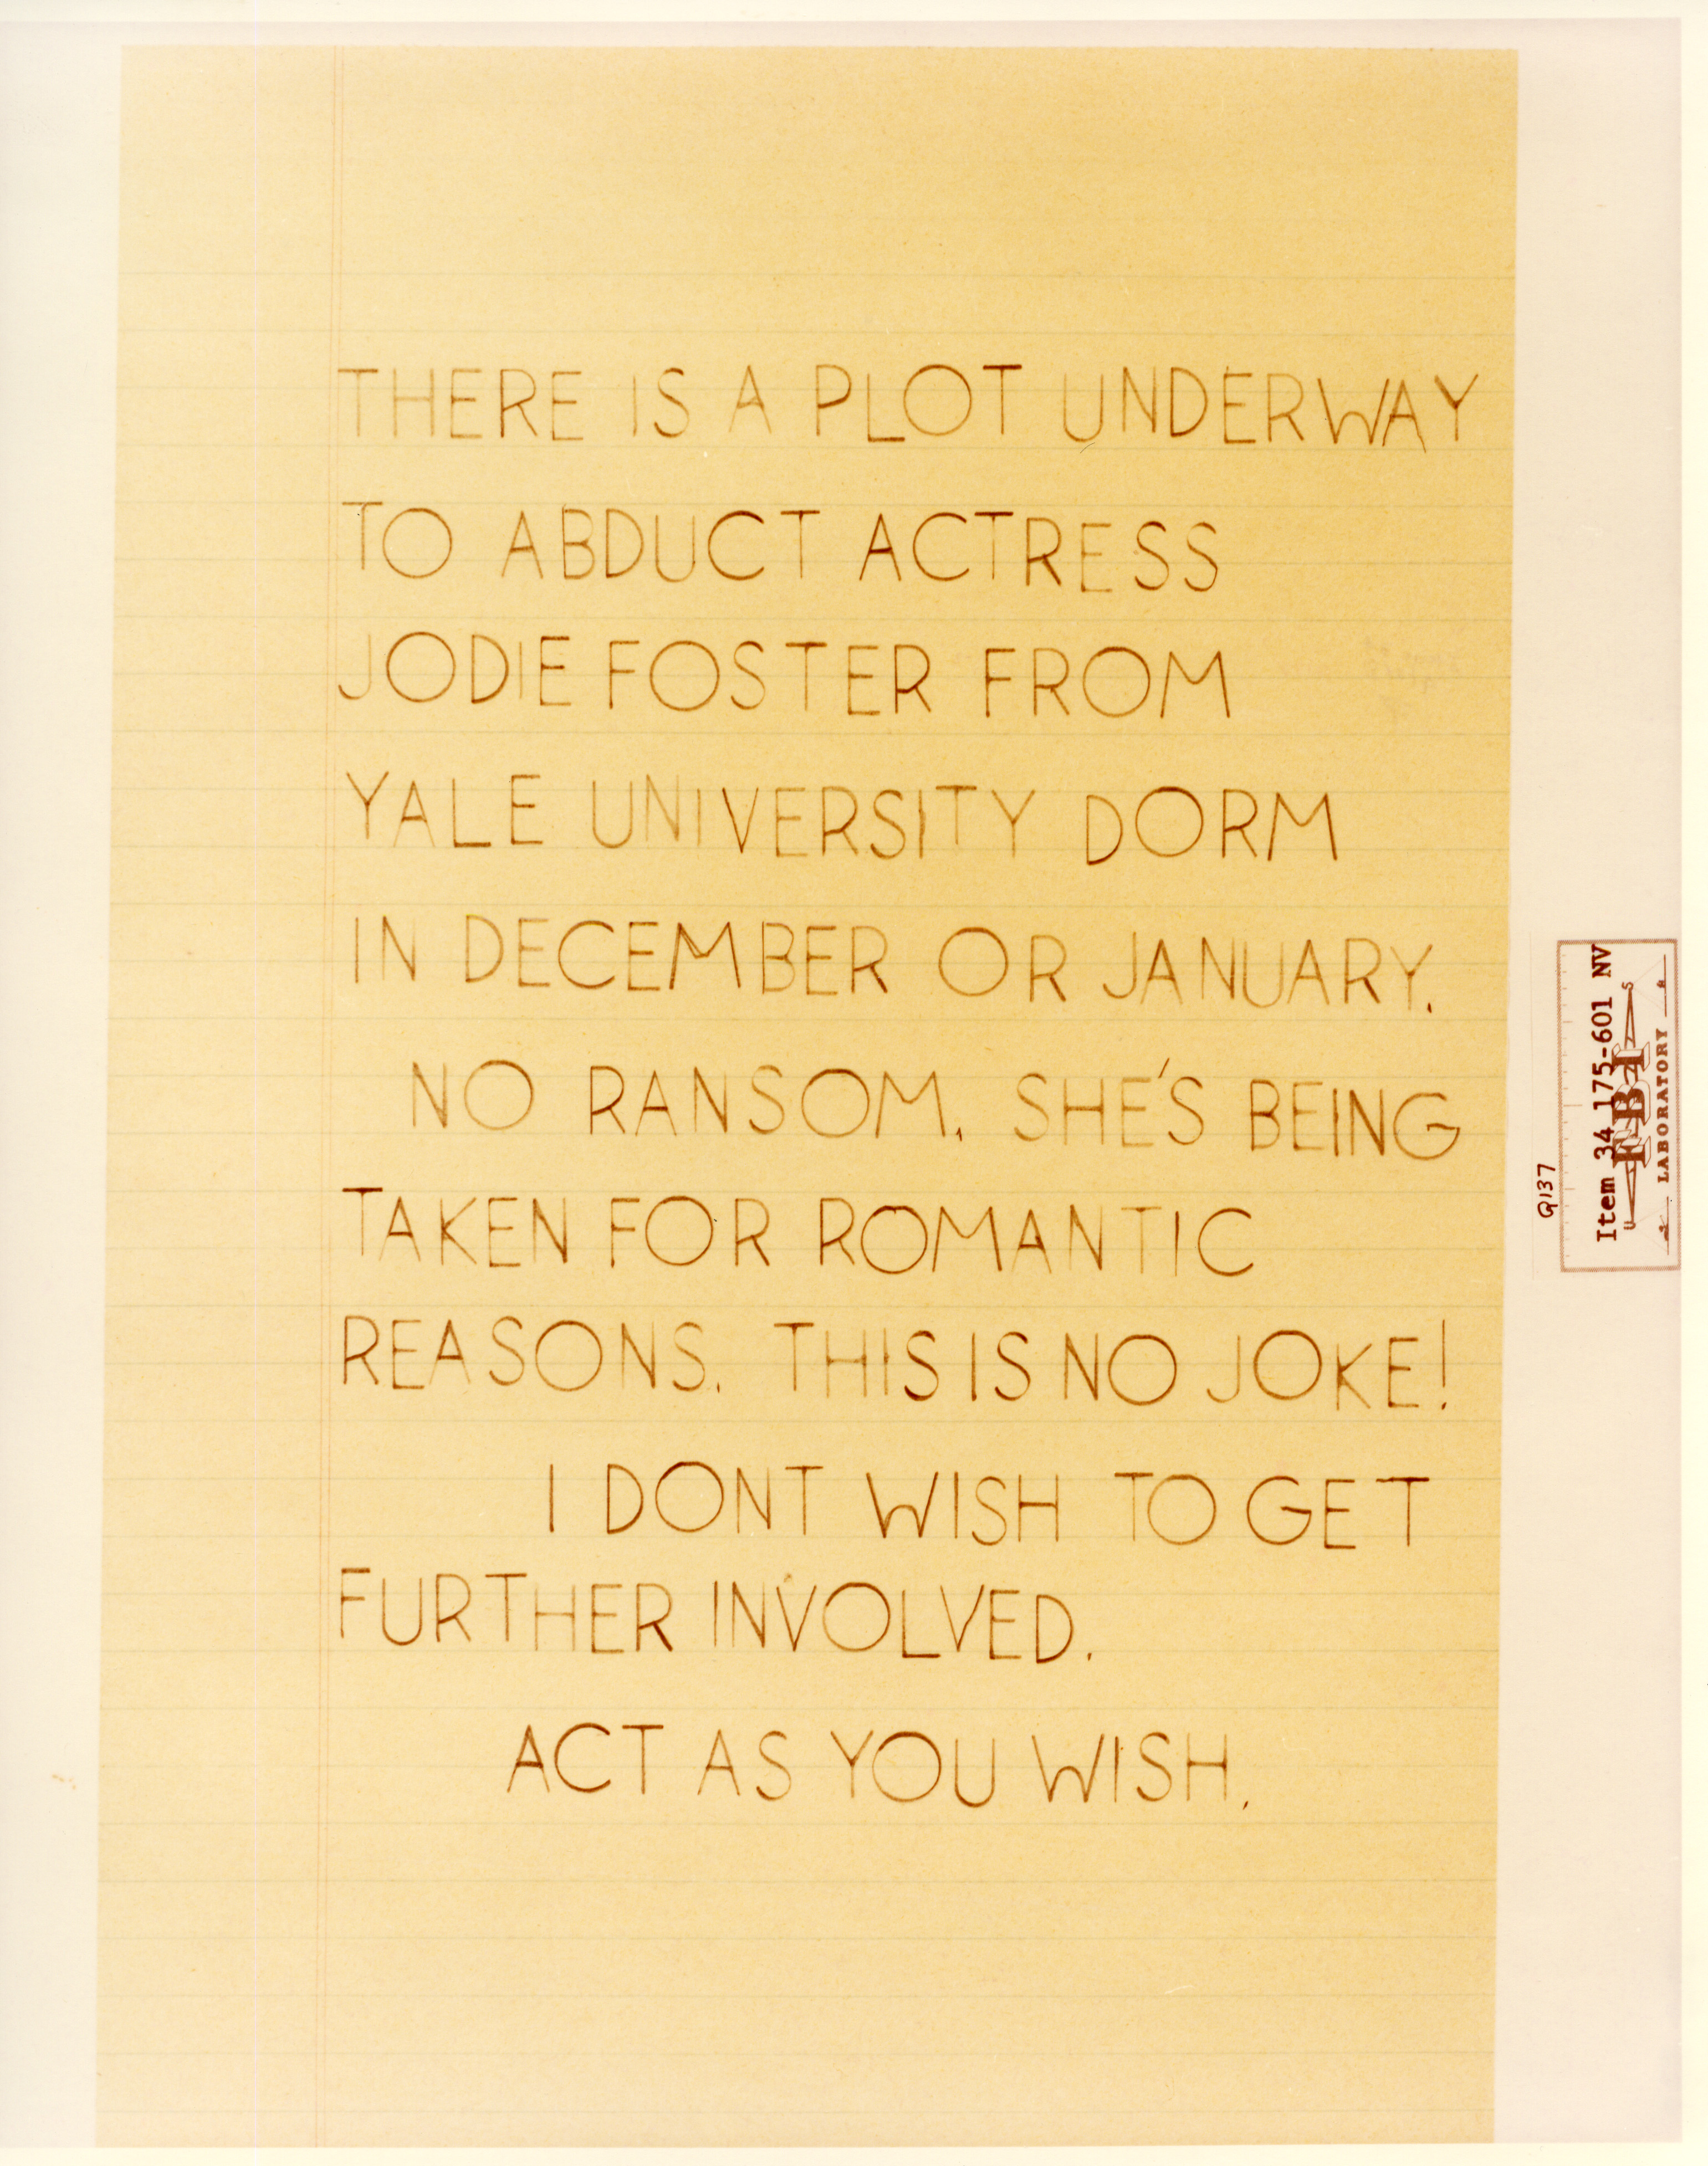 THERE IS A PLOT UNDERWAY
TO ABDUCT ACTRESS
JODIE FOSTER FROM
YALE UNIVERSITY DORM
IN DECEMBER OR JANUARY.
NO RANSOM. SHE'S BEING
TAKEN FOR ROMANTIC
REASONS. THIS IS NO JOKE!
I DONT WISH TO GET
FURTHER INVOLVED.
ACT AS YOU WISH.
Q137
Item 34 175-601 NV
FBI
LABORATORY